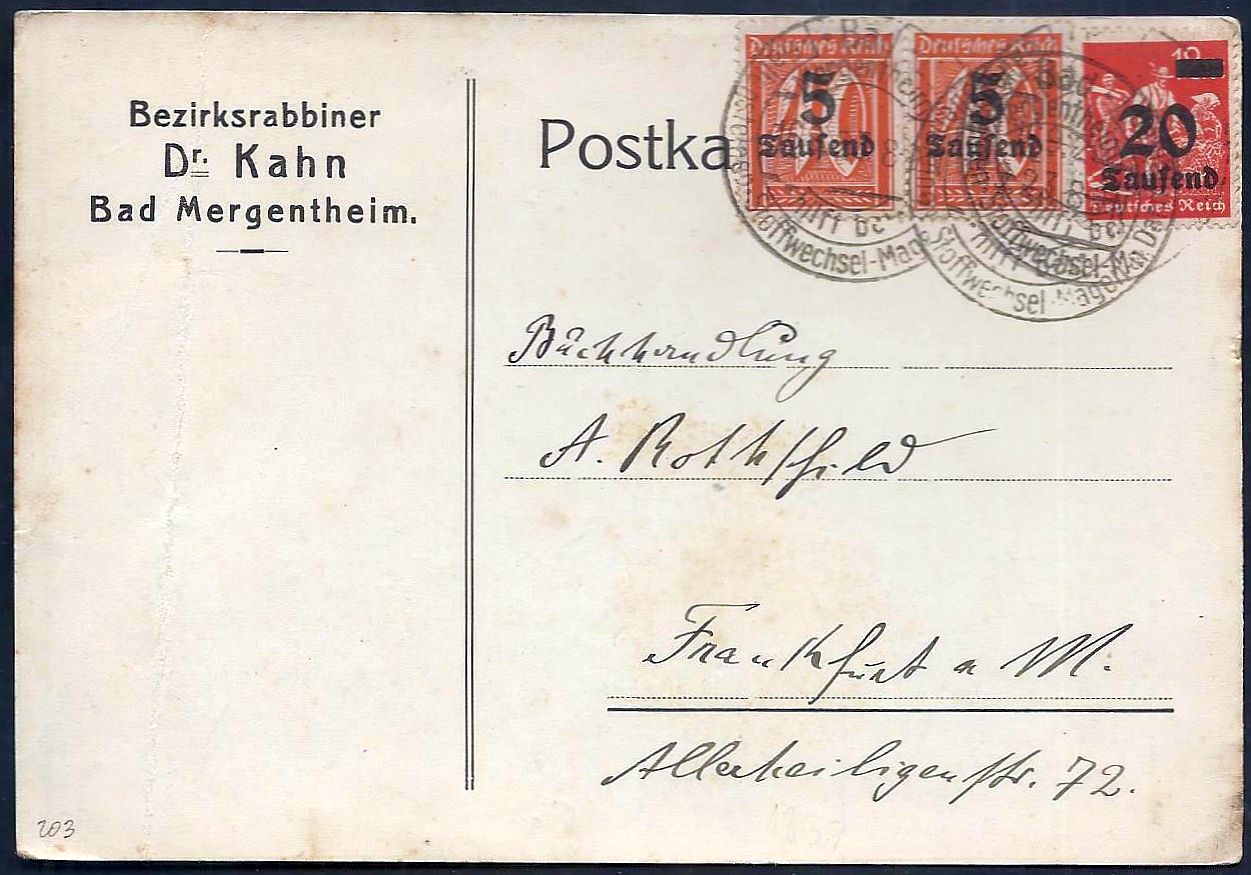 Bezirksrabbiner
Dr. Kahn
Bad Mergentheim.
Postka
Deutsches Reich
5
Tausend
Deutsches Reich
5
Tausend
10
20
Tausend
Deutsches Reich
Bad
hilft bei
Stoffwechsel-Mag
Stoffwechsel-M
Stoffwechsel-Magen
Buchhandlung
A. Rothschild
Frankfurt a M.
Allerheiligenstr. 72.
203